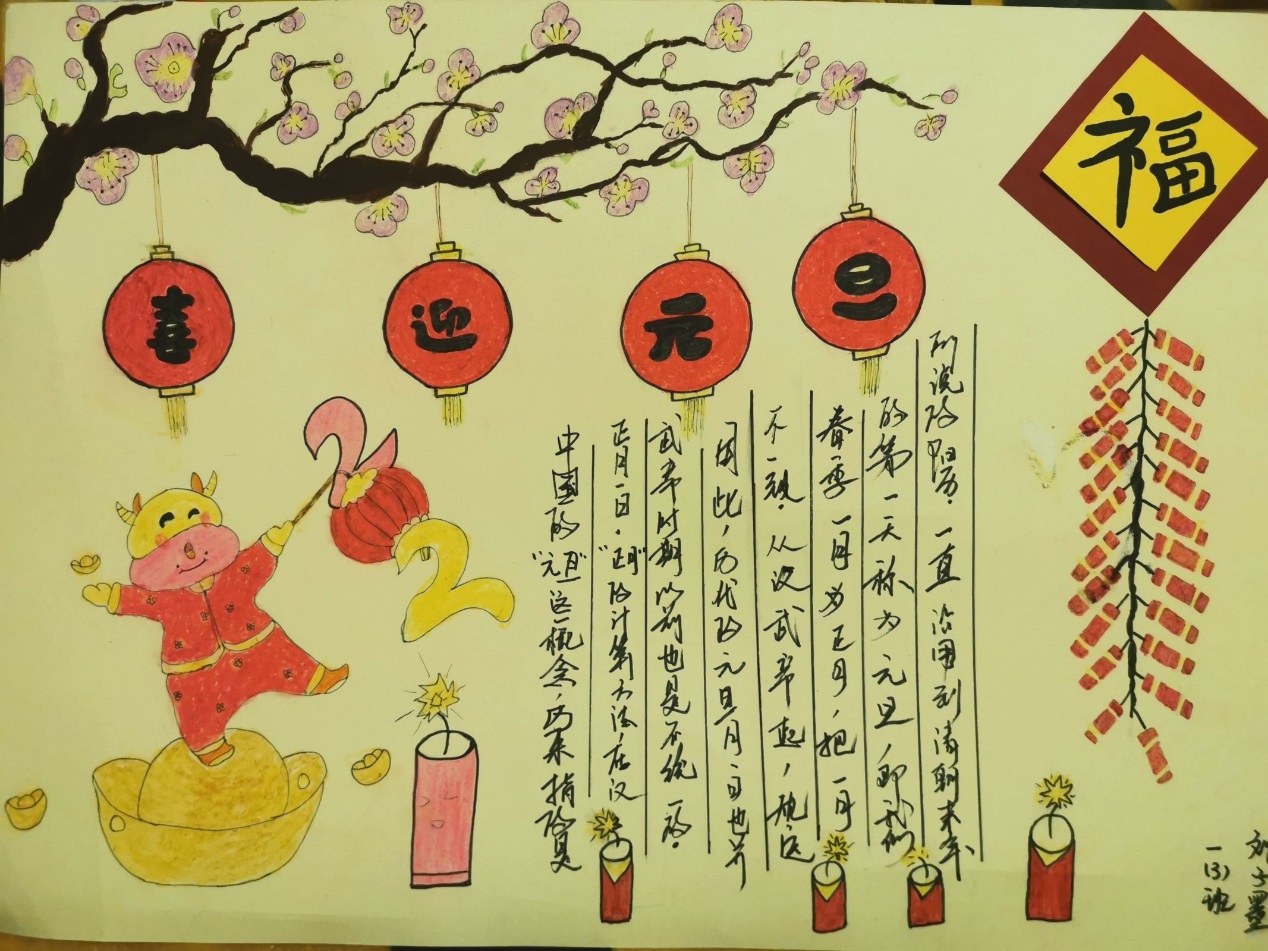 福
喜迎元旦
2
2
中国的"元旦"这一概念，历来指的是
正月一日。"正月"的计算方法，在汉
武帝时期以前也是不统一的。
因此，历代的元旦月、日也并
不一致。从汉武帝起，规定
春季一月为正月，把一月
的第一天称为元旦，即我们
所说的阳历。一直沿用到清朝末年
一(3)班